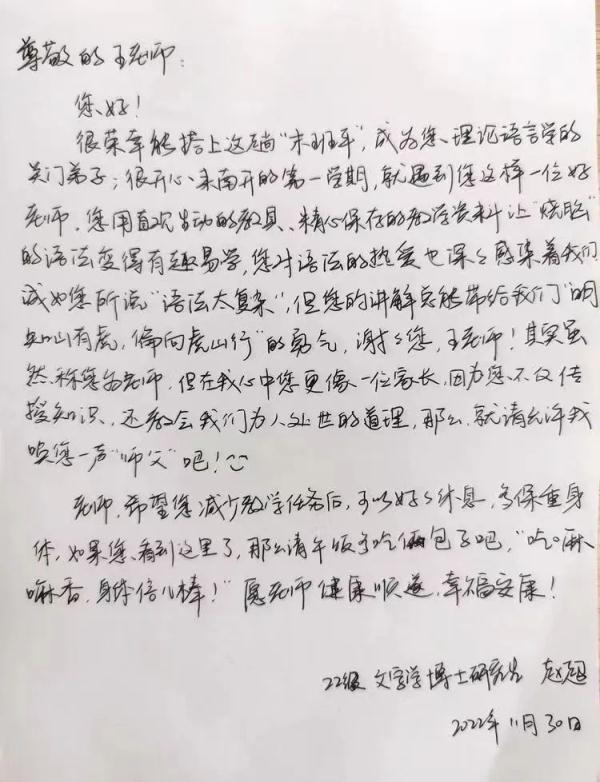 尊敬的王老师：
您好！
很荣幸能搭上这趟“末班车”，成为您、理论语言学的
关门弟子；很开心来南开的第一学期，就遇到您这样一位好
老师。您用直观生动的教具、精心保存的教学资料让“烧脑”
的语法变得有趣易学，您对语法的热爱也深々感染着我们
诚如您所说“语法太复杂”，但您的讲解总能带给我们“明
知山有虎，偏向虎山行”的勇气，谢々您，王老师！其实虽
然称您为老师，但在我心中您更像一位家长，因为您不仅传
授知识、还教会我们为人处世的道理，那么，就请允许我
唤您一声“师父”吧！
老师，希望您减少教学任务后，可以好々休息，多保重身
体，如果您看到这里了，那么请午饭多吃俩包子吧，“吃嘛
嘛香，身体倍儿棒！”愿老师健康顺遂，幸福安康！
22级 文字学博士研究生 赵
2022年11月30日